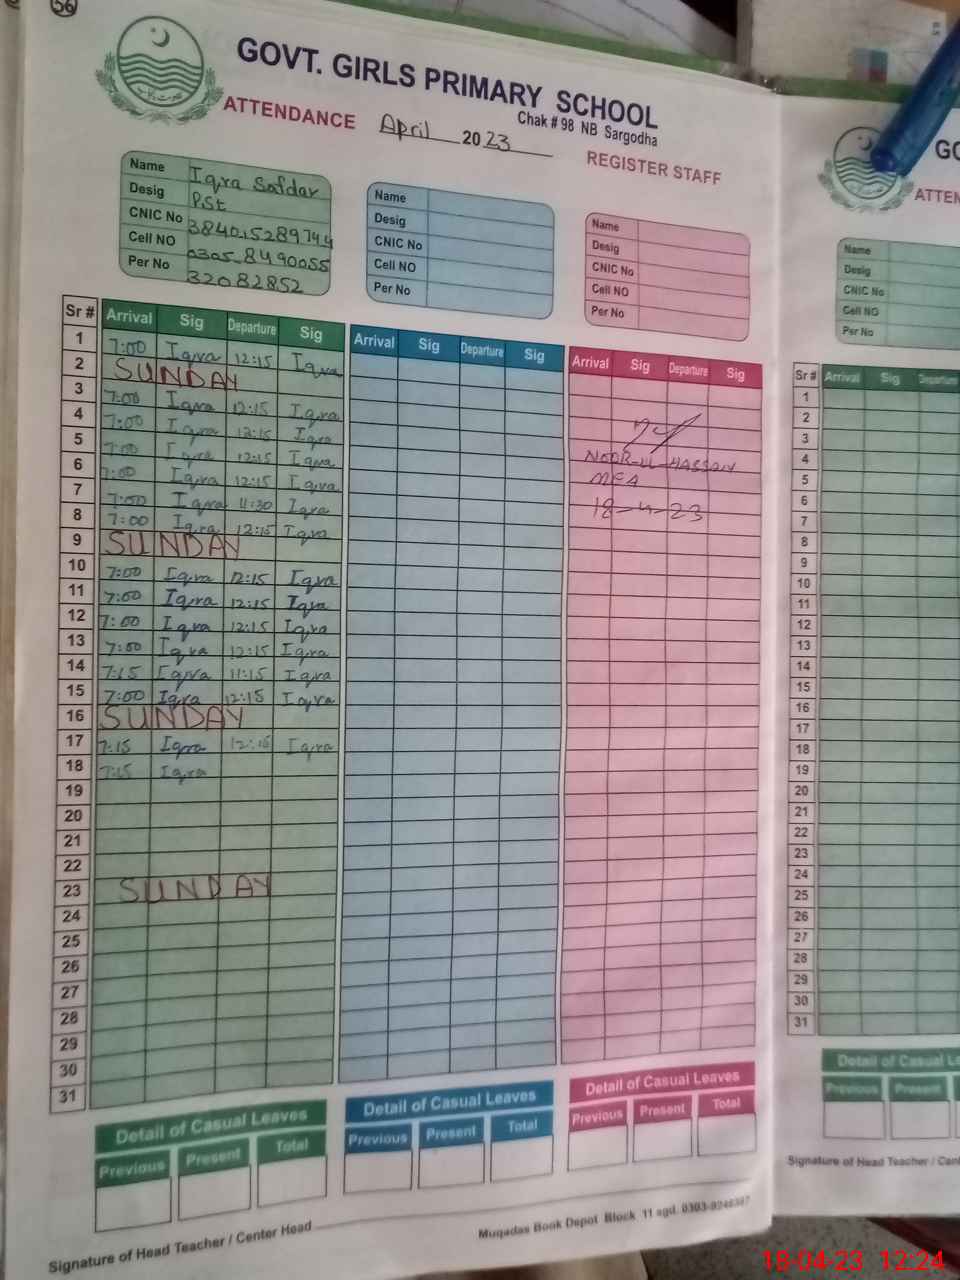 56
GOVT. GIRLS PRIMARY SCHOOL
Chak # 98 NB Sargodha
ATTENDANCE April 2023 REGISTER STAFF
Name Iqra Safdar
Desig Pst
CNIC No 3840152897944
Cell NO 0305-8490055
Per No 32082852
Name
Desig
CNIC No
Cell NO
Per No
Name
Desig
CNIC No
Cell NO
Per No
Sr # Arrival Sig Departure Sig Arrival Sig Departure Sig Arrival Sig Departure Sig
1 7:00 Iqra 12:15 Iqra
2 SUNDAY
3 7:00 Iqra 12:15 Iqra
4 7:00 Iqra 12:15 Iqra
5 7:00 Iqra 12:15 Iqra
6 7:00 Iqra 12:15 Iqra
7 7:00 Iqra 11:30 Iqra
8 7:00 Iqra 12:15 Iqra
9 SUNDAY
10 7:00 Iqra 12:15 Iqra
11 7:00 Iqra 12:15 Iqra
12 7:00 Iqra 12:15 Iqra
13 7:00 Iqra 12:15 Iqra
14 7:15 Iqra 11:15 Iqra
15 7:00 Iqra 12:15 Iqra
16 SUNDAY
17 7:15 Iqra 12:15 Iqra
18 7:15 Iqra
19
20
21
22
23 SUNDAY
24
25
26
27
28
29
30
31
NOOR-UL-HASSAN
MEA
18-4-23
Detail of Casual Leaves
Previous Present Total
Detail of Casual Leaves
Previous Present Total
Detail of Casual Leaves
Previous Present Total
Signature of Head Teacher / Center Head
Muqadas Book Depot Block 11 sgd.
GO
ATTEN
Name
Desig
CNIC No
Cell NO
Per No
Sr # Arrival Sig Departure
1
2
3
4
5
6
7
8
9
10
11
12
13
14
15
16
17
18
19
20
21
22
23
24
25
26
27
28
29
30
31
Detail of Casual Le
Previous Present
Signature of Head Teacher / Cent
18-04-23 12:24